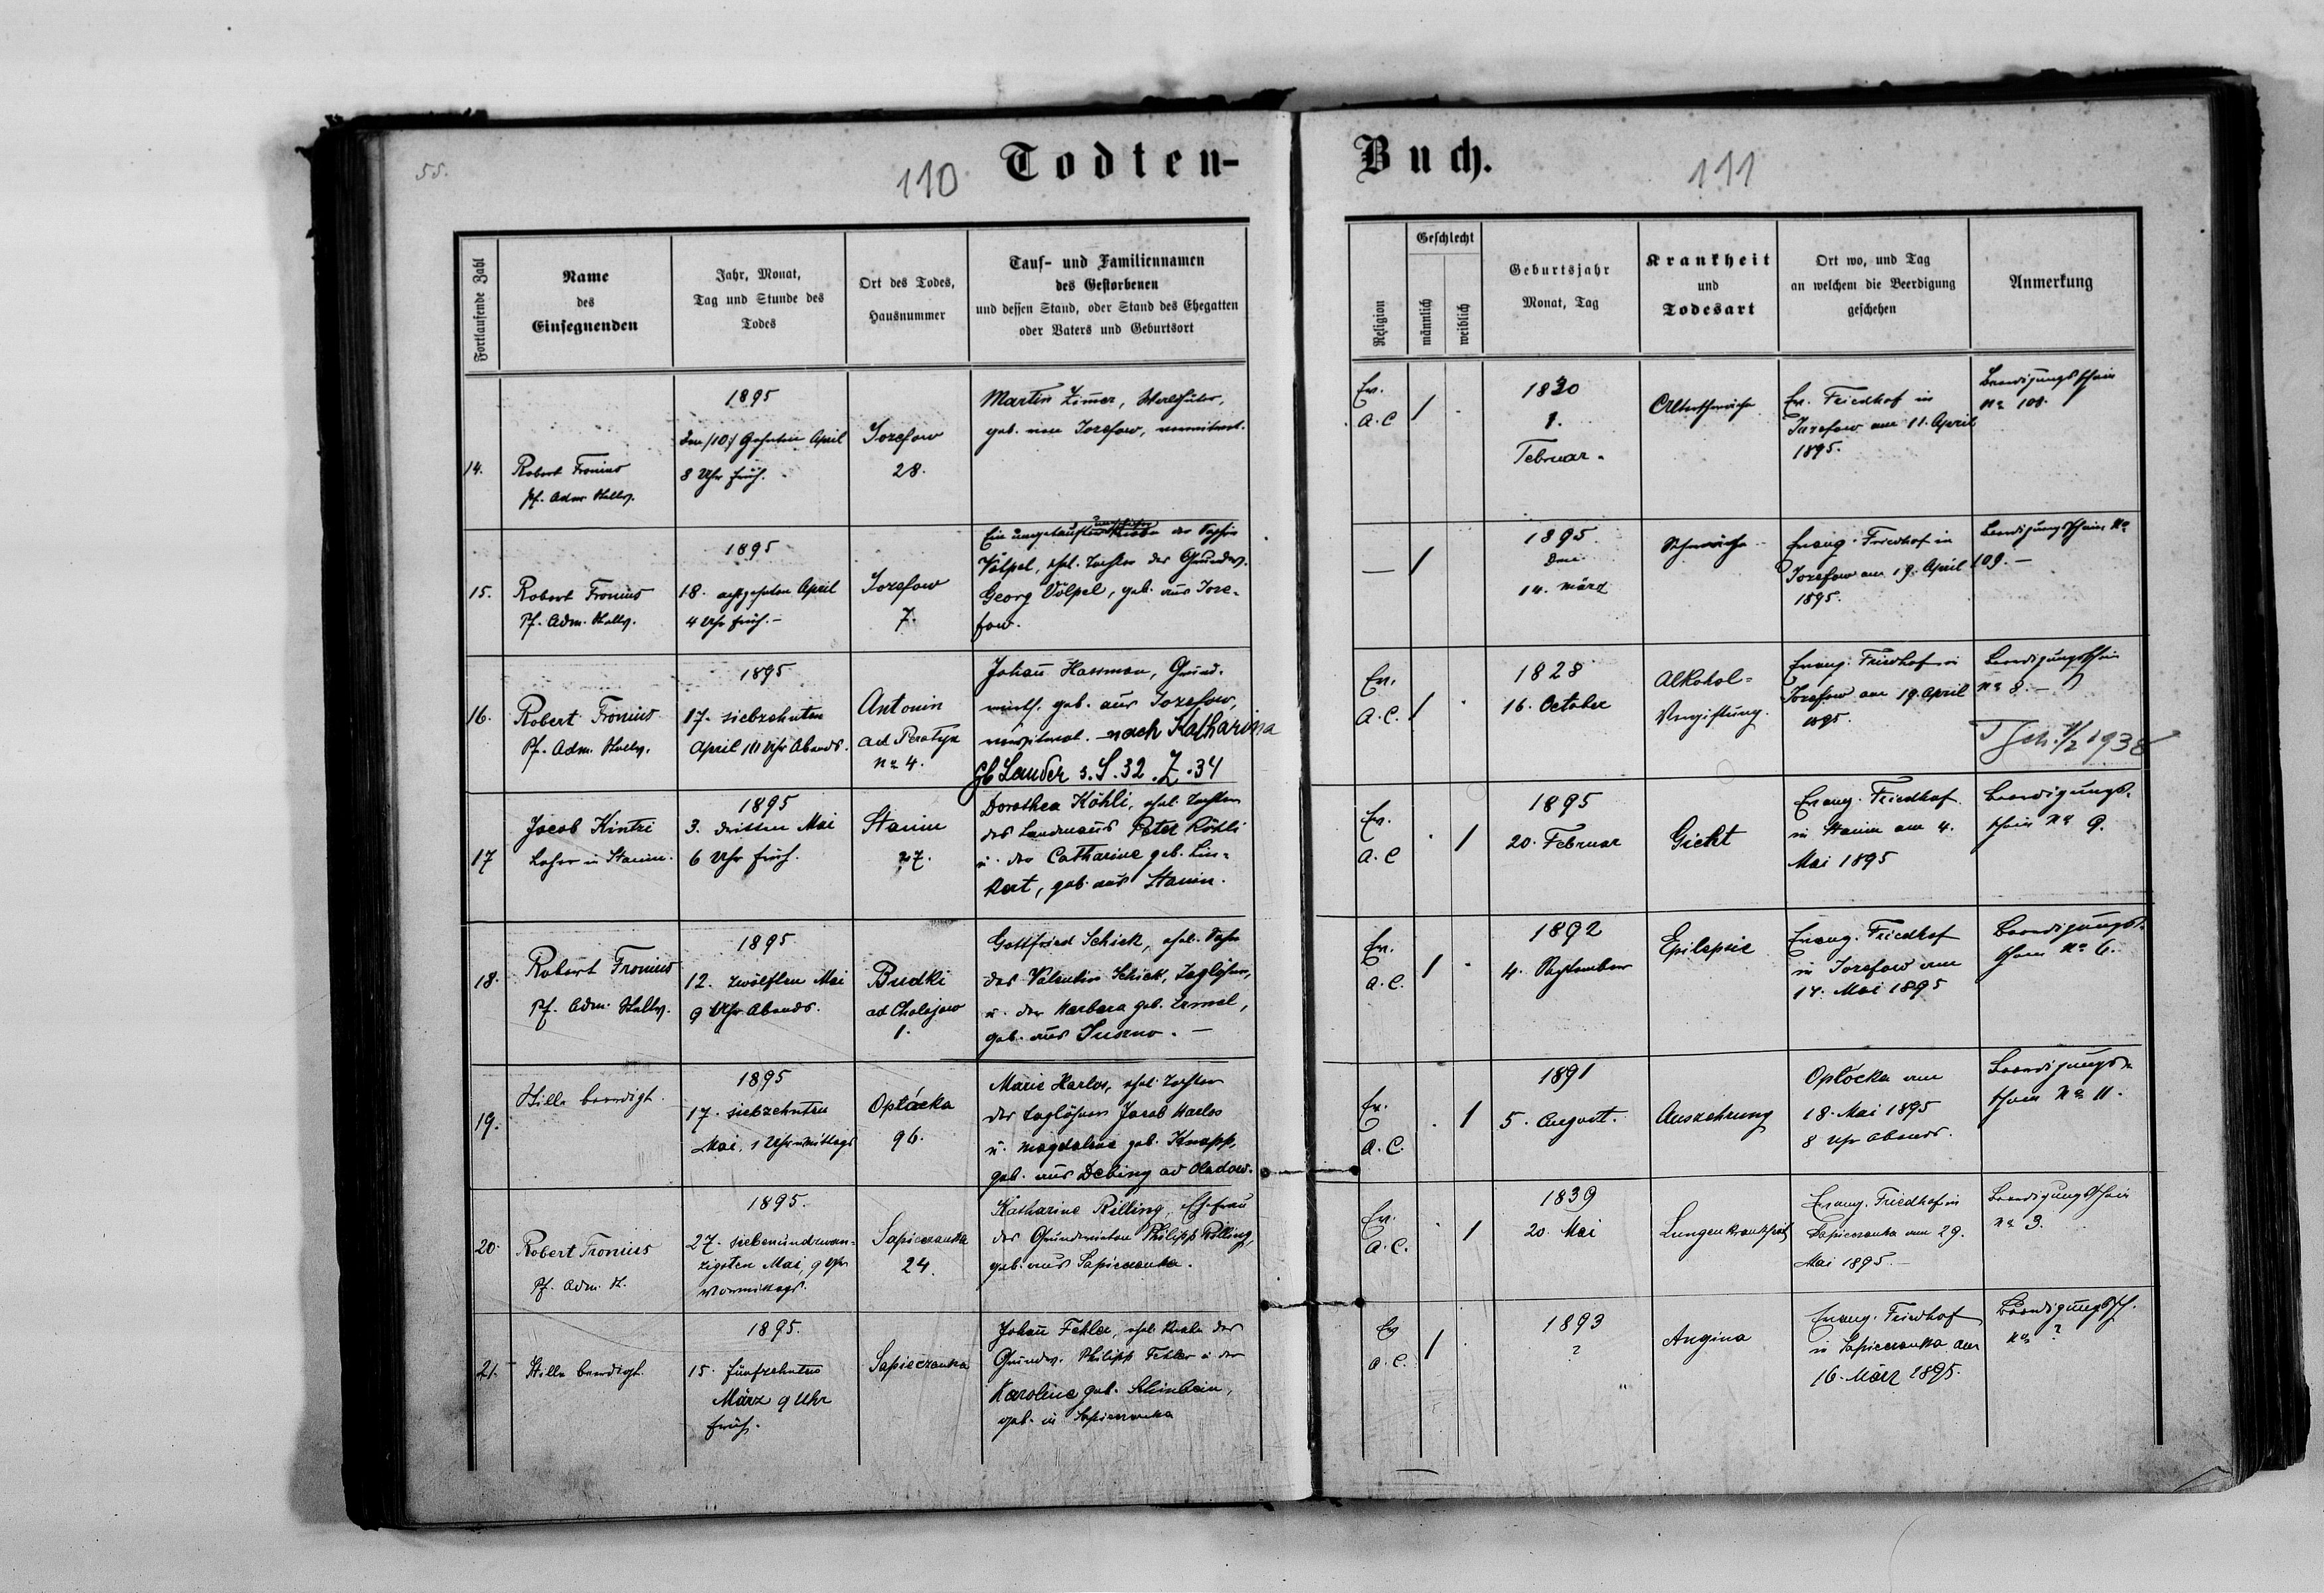 55.
110
Todten-
Fortlaufende Zahl
Name
des
Einsegnenden
Jahr, Monat,
Tag und Stunde des
Todes
Ort des Todes,
Hausnummer
Tauf- und Familiennamen
des Gestorbenen
und dessen Stand, oder Stand des Ehegatten
oder Vaters und Geburtsort
14.
Robert Fronius
Pf. Adm. Stellv.
1895
den /10./ Zehnten April
8 Uhr früh.
Jozefow
28.
Martin Zimer,
geb. von Jozefow, verwitwet.
15.
Robert Fronius
Pf. Adm. Stellv.
1895
18. achtzehnten April
4 Uhr früh.-
Jozefow
7.
Ein ungetaufter Knabe der Sophie
Völpel, ehel. Tochter des Grundw.
Georg Völpel, geb. aus Joze-
fow.
16.
Robert Fronius
Pf. Adm. Stellv.
1895
17. siebzehnten
April 10 Uhr Abends.
Antonin
ad Peratyn
No 4.
Johañ Hassman, Grund-
wirth. geb. aus Jozefow,
verwitwet. nach Katharina
gb Lauder s. S. 32. Z. 34
17
Jacob Kintzi
Lehrer in Stanin.
1895
3. dritten Mai
6 Uhr früh.
Stanin
27.
Dorothea Köhli, ehel. Tochter
des Landmañs Peter Köhli
u. der Catharine geb. Lin-
kert, geb. aus Stanin.
18.
Robert Fronius
Pf. Adm. Stellv.
1895
12. zwölften Mai
9 Uhr Abends.
Budki
ad Cholojow
1.
Gottfried Schick, ehel. Sohn
des Valentin Schick, Taglöhner,
u. der Barbara geb. Ermel,
geb. aus Suszno. -
19.
Stille beerdigt.
1895
17. siebzehnten
Mai, 1 Uhr Mittags
Opłócka
96.
Marie Harlos, ehel. Tochter
des Taglöhners Jacob Harlos
u. Magdalena geb. Knopp,
geb. aus Debiny ad Oladow.
20.
Robert Fronius
Pf. Adm. St.
1895.
27. siebenundzwan-
zigsten Mai, 9 Uhr
Vormittags.
Sapiezanka
24.
Katharine Rilling, Ehefrau
des Grundwirten Philipp Rilling,
geb. aus Sapiezanka.
21.
Stille beerdigt.
1895.
15. fünfzehnten
März 9 Uhr
früh.
Sapiezanka
Johañ Fehler, ehel. Knabe des
Grundw. Philipp Fehler u. der
Karoline geb. Scheinbein,
geb. in Sapiezanka
Buch.
111
Religion
Geschlecht
männlich
weiblich
Geburtsjahr
Monat, Tag
Krankheit
und
Todesart
Ort wo, und Tag
an welchem die Beerdigung
geschehen
Anmerkung
Ev.
A. C
1
1820
1.
Februar.
Altersschwäche
Ev. Friedhof in
Jozefow am 11. April
1895.
Beerdigungsschein
No 108.
—
1
1895
den
14. März
Schwäche
Evang. Friedhof in
Jozefow am 19. April
1895.
Beerdigungsschein No
109. -
Ev.
A. C.
1
1828
16. October
Alkohol-
Vergiftung.
Evang. Friedhof in
Jozefow am 19. April
1895.
Beerdigungsschein
No 8. -
1938
Ev.
A. C
1
1895
20. Februar
Gicht
Evang. Friedhof
in Stanin am 4.
Mai 1895
Beerdigungs-
schein No 9.
Ev.
A. C.
1
1892
4. September
Epilepsie
Evang. Friedhof
in Jozefow am
14. Mai 1895
Beerdigungs-
schein No 6.
Ev.
A. C.
1
1891
5. August.
Auszehrung
Opłócka am
18. Mai 1895
8 Uhr Abends.
Beerdigungs-
schein No 11.
Ev.
A. C.
1
1839
20. Mai
Lungenkrankheit
Evang. Friedhof in
Sapiezanka am 29.
Mai 1895. -
Beerdigungsschein
No 3.
Ev
A. C.
1
1893
?
Angina
Evang. Friedhof
in Sapiezanka am
16. März 1895.
Beerdigungssch.
No ?